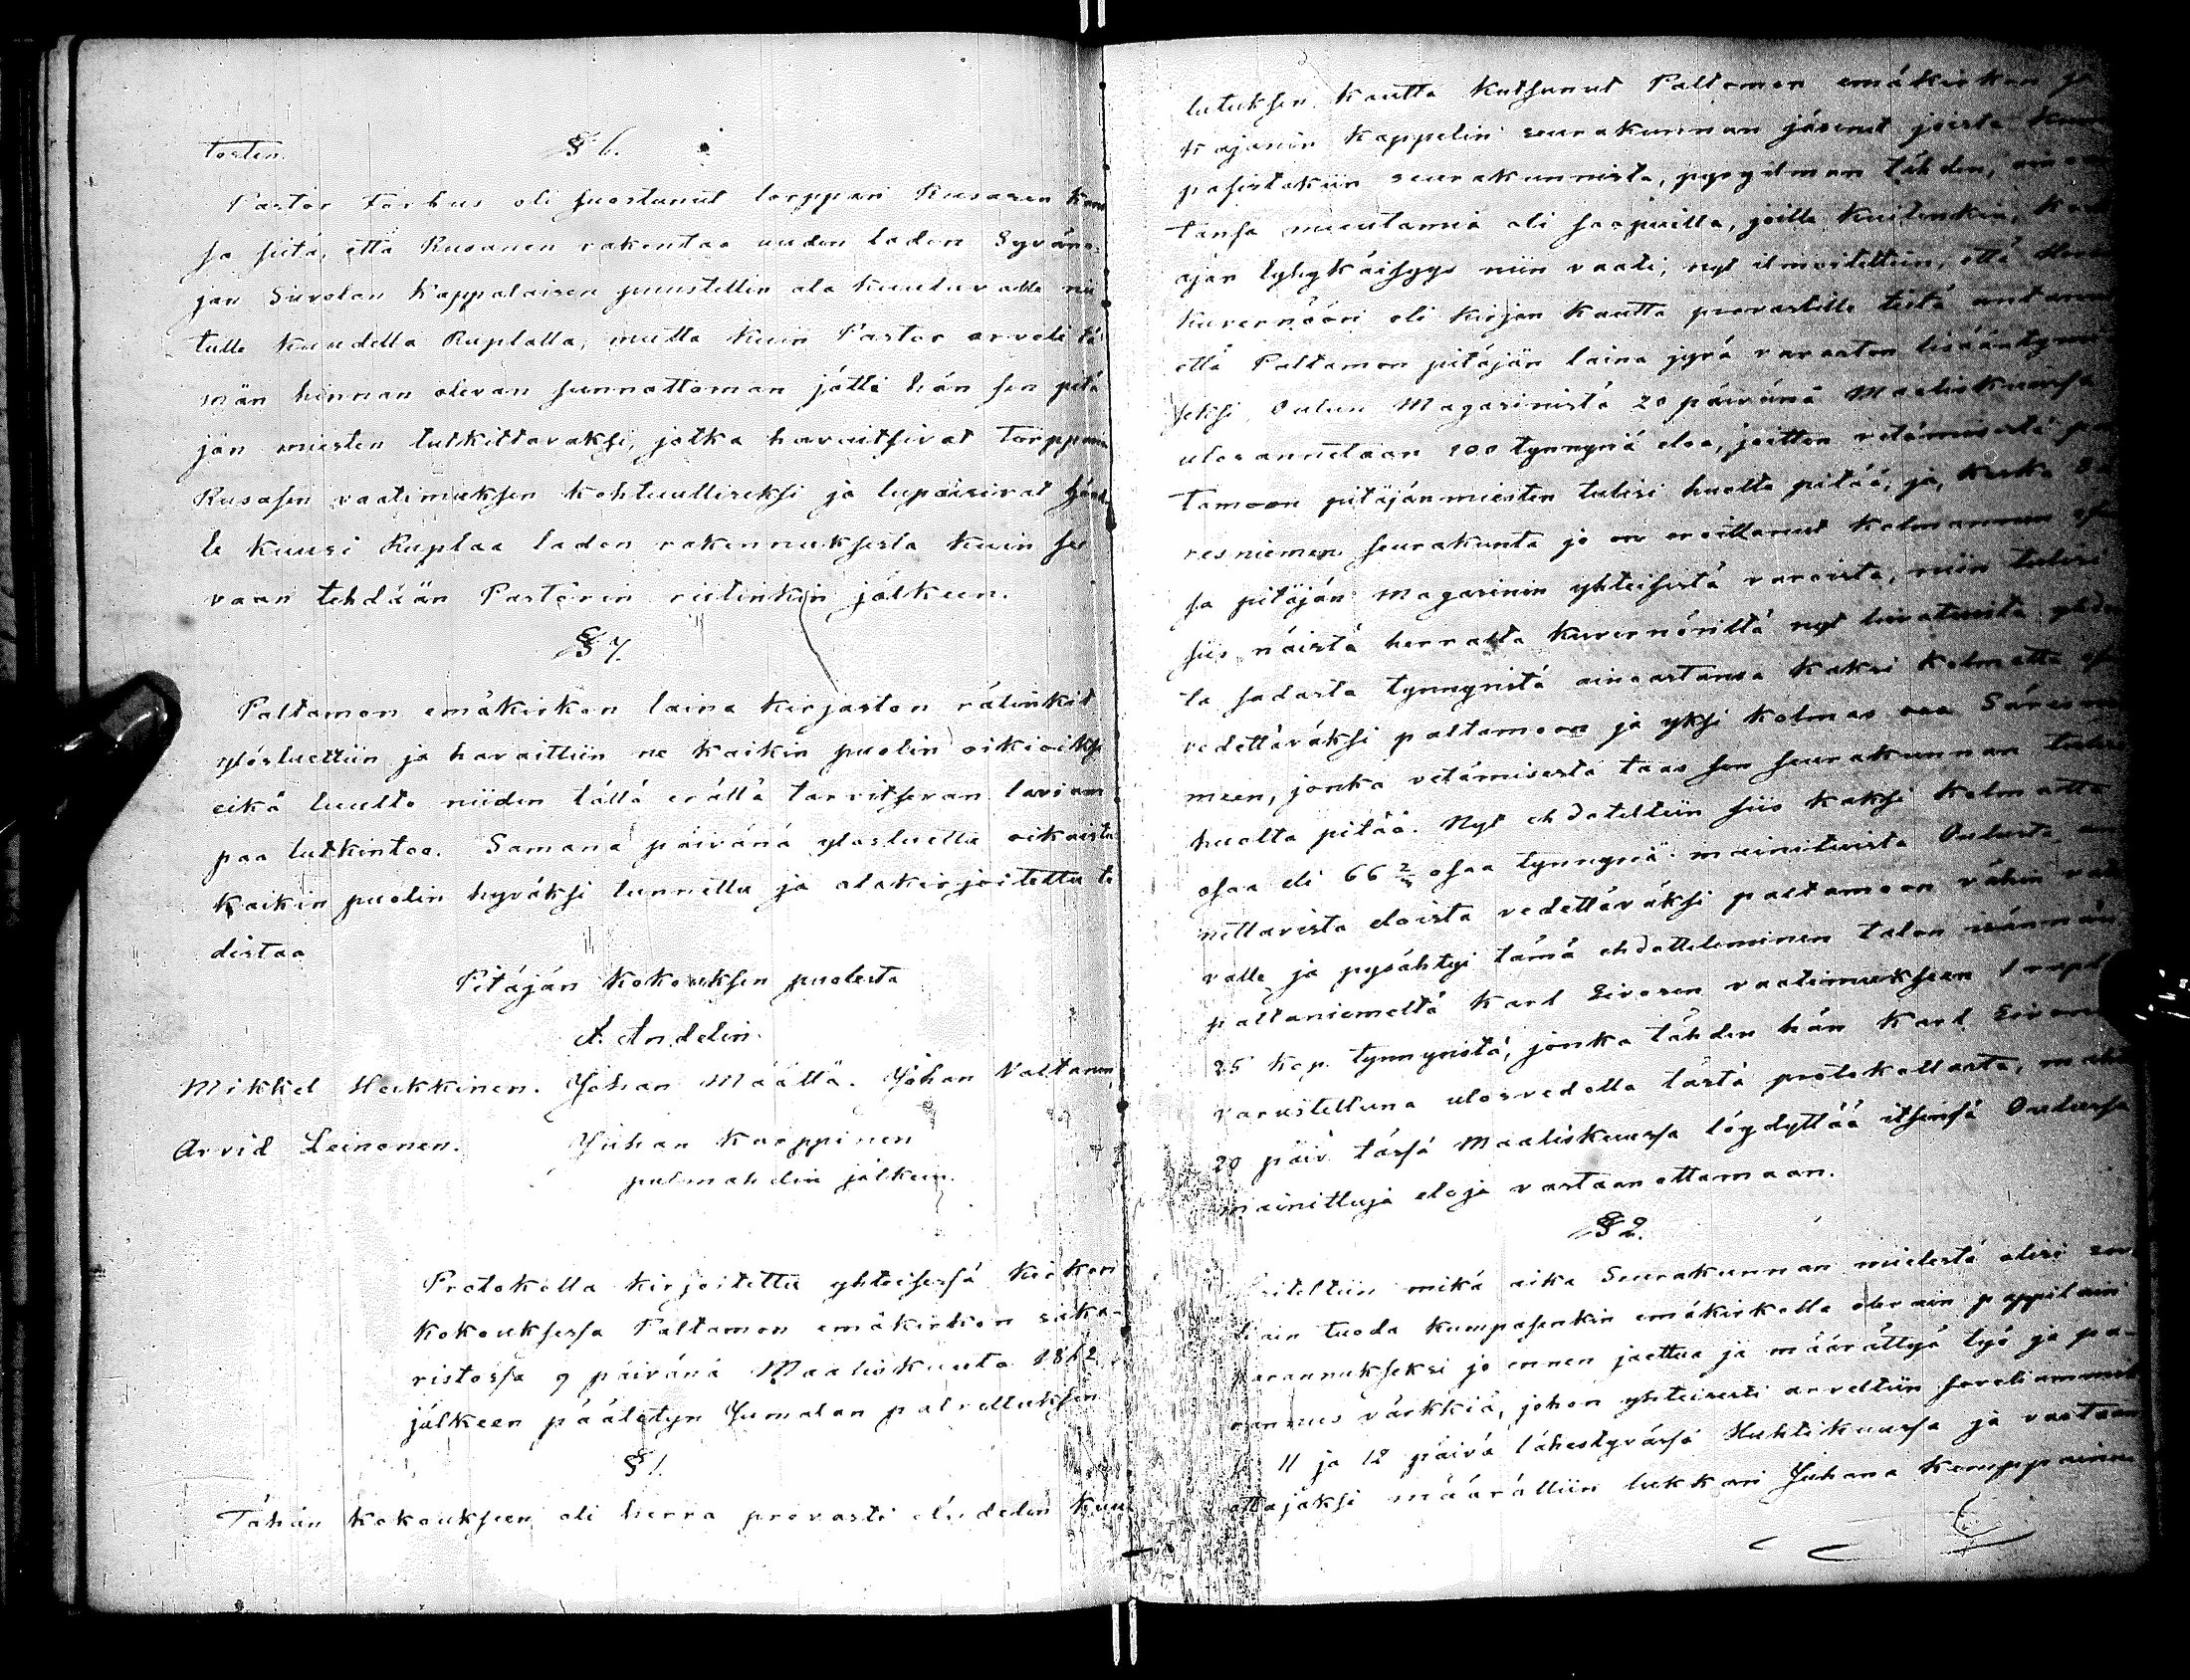 tosten. § 6.
Pastor Forbus oli suostunut torppari Rusasen kans
sa siitä, että Rusanen rakentaa uuden ladon Syvären-
jan Sivolan Kappalaisen puustellin ala kuuluvalle nii
tulle kuudella Ruplalla, mutta kuin Pastor arveli tä
män hinnan olevan sunnattoman jätti hän sen pitä
jän miesten tutkittavaksi, jotka havaitsivat Torpparin
Rusasen vaatimuksen kohtuulliseksi ja lupaisivat
le kuusi Ruplaa ladon rakennuksesta kuin se
vaan tehdään Pastorin riitinkin jälkeen.
§ 7.
Paltamon emäkirkon laina kirjaston rätinkit
ylösluettiin ja havaittiin ne kaikin puolin oikioiksi
eikä luulto niiden tällä erällä tarvitsevan laviam
paa tutkintoa. Samana päivänä ylösluettu oikaistu
kaikin puolin hyväksi tunnettu ja alakirjoitettu to
distaa
Pitäjän Kokouksen puolesta
A. Andelin.
Mikkel Heikkinen. Johan Määttä. Johan Valtanen,
Arvid Leinonen. Juhan Karppinen
pulmahelin jälkeen.
Protokolla kirjoitettu yhteisessä kirkon
kokouksessa Paltamon emäkirkon saka-
ristossa 9 päivänä Maaliskuuta 1862
jälkeen päätetyn Jumalan palvelluksen
§ 1.
Tähän kokoukseen oli herra provasti Andelin kuu
lutuksen kautta kutsunut Paltamon emäkirkon ja
Kajanin kappelin seurakunnan jäsenet joista kum
pasistakiin seurakunnista, pyryilman tähden, ainoas
tansa muutamia oli saapuilla, joille kuitenkin, koska
ajan lyhykäisyys niin vaati, nyt ilmoitettiin, että Herra
Kuvernööri oli kirjan kautta provastille tietä antanut
että Paltamon pitäjän laina jyvä varaston lisääntymi
seksi Oulun Magasinista 20 päivänä Maaliskuussa
ulosannetaan 100 tynnyriä eloa, joitten vetämisestä pal
tamoon pitäjänmiesten tulisi huolta pitää, ja, koska Sä
resniemen seurakunta jo on eroittanut kolmannen osan
sa pitäjän Magasinin yhteisestä varoista, niin tulisi
siis näistä herralta Kuvernöriltä nyt luvatuista yhdes
tä sadasta tynnyristä ainoastansa kaksi kolmatta osaa
vedettäväksi paltamoon ja yksi kolmas osa Säresnie
meen, jonka vetämisestä taas sen seurakunnan tulisi
huolta pitää. Nyt ehdoteltiin siis kaksi kolmatta
osaa eli 66 2/3 osaa tynnyriä mainituista Oulusta an
nettavista eloista vedettäväksi paltamoon vähin vaa
valle ja pysähtyi tämä ehdotteleminen talon isännän
paltaniemeltä Karl Sivosen vaatimukseen 1 rupla
25 kop. tynnyristä, jonka tähden hän Karl Sivonen
varustettuna ulosvedolla tästä protokollasta, mahta
20 päiv. tässä Maaliskuussa löydyttää itsensä Oulussa
mainittuja eloja vastaanottamaan.
§ 2.
mikä aika Seurakunnan mielestä olisi sov
tuoda kumpasenkin emäkirkolla olevain pappilain
parannukseksi jo ennen jaettua ja määrättyä työ ja pa-
rannus värkkiä, johon yhteisesti arveltiin soveliammak
si 11 ja 12 päivä lähestyvässä Huhtikuussa ja vastaan
ottajaksi määrättiin lukkari Juhana Kemppainen